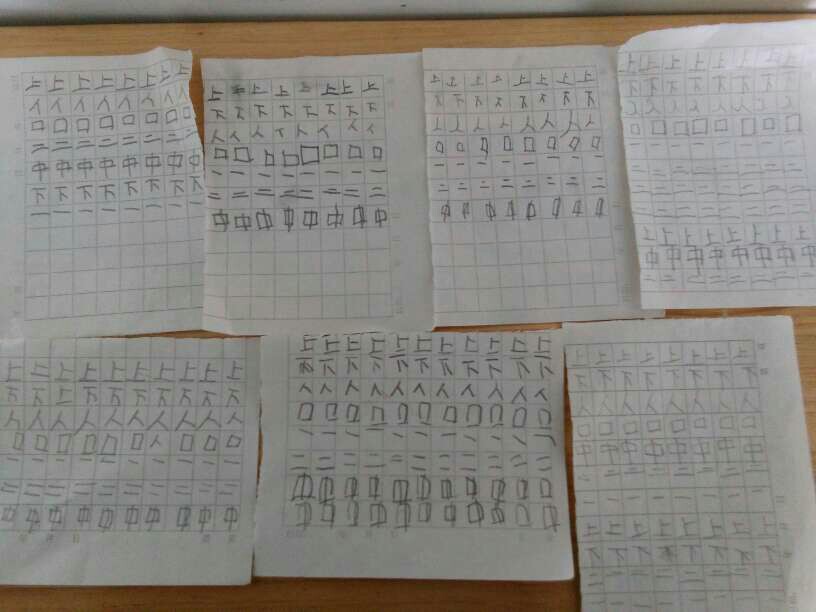 上上上上上上上上
人人人人人人人人
口口口口口口口口
二二二二二二二二
中中中中中中中中
下下下下下下下下
一一一一一一一一
上上上上上上
下下下下下下下下
人人人人人人人人
口口口口口口口口
一一一一一一一一
二二二二二二二二
中中中中中中中中
上上上上上上上上
下下下下下下下下
人人人人人人人人
口口口口口口口口
一一一一一一一一
二二二二二二二二
中中中中中中中中
上上上上上上上上
下下下下下下下下
人人人人人人人人
口口口口口口口口
一一一一一一一一
二二二二二二二二
上上上上上上上上
中中中中中中中中
二二二二二二二二
上上上上上上上上上
下下上下下下下下下
人人人人人人人人人
口口口口口口口口
一一一一一一一一一
二二二二二二二二二
中中中中中中中中中
上上上上上上上上上上
下下下下下下下下下
人人人人人人人人人人
口口口口口口口口口口
一一一一一一一一一一
二二二二二二二二二二
中中中中中中中中中
上上上上上上上上
下下下下下下下下
人人人人人人人人
口口口口口口口口
中中中中中中中中
二二二二二二二二
一一一一一一一一
上上上上上上上上
下下下下下下下
二二二二二二二二